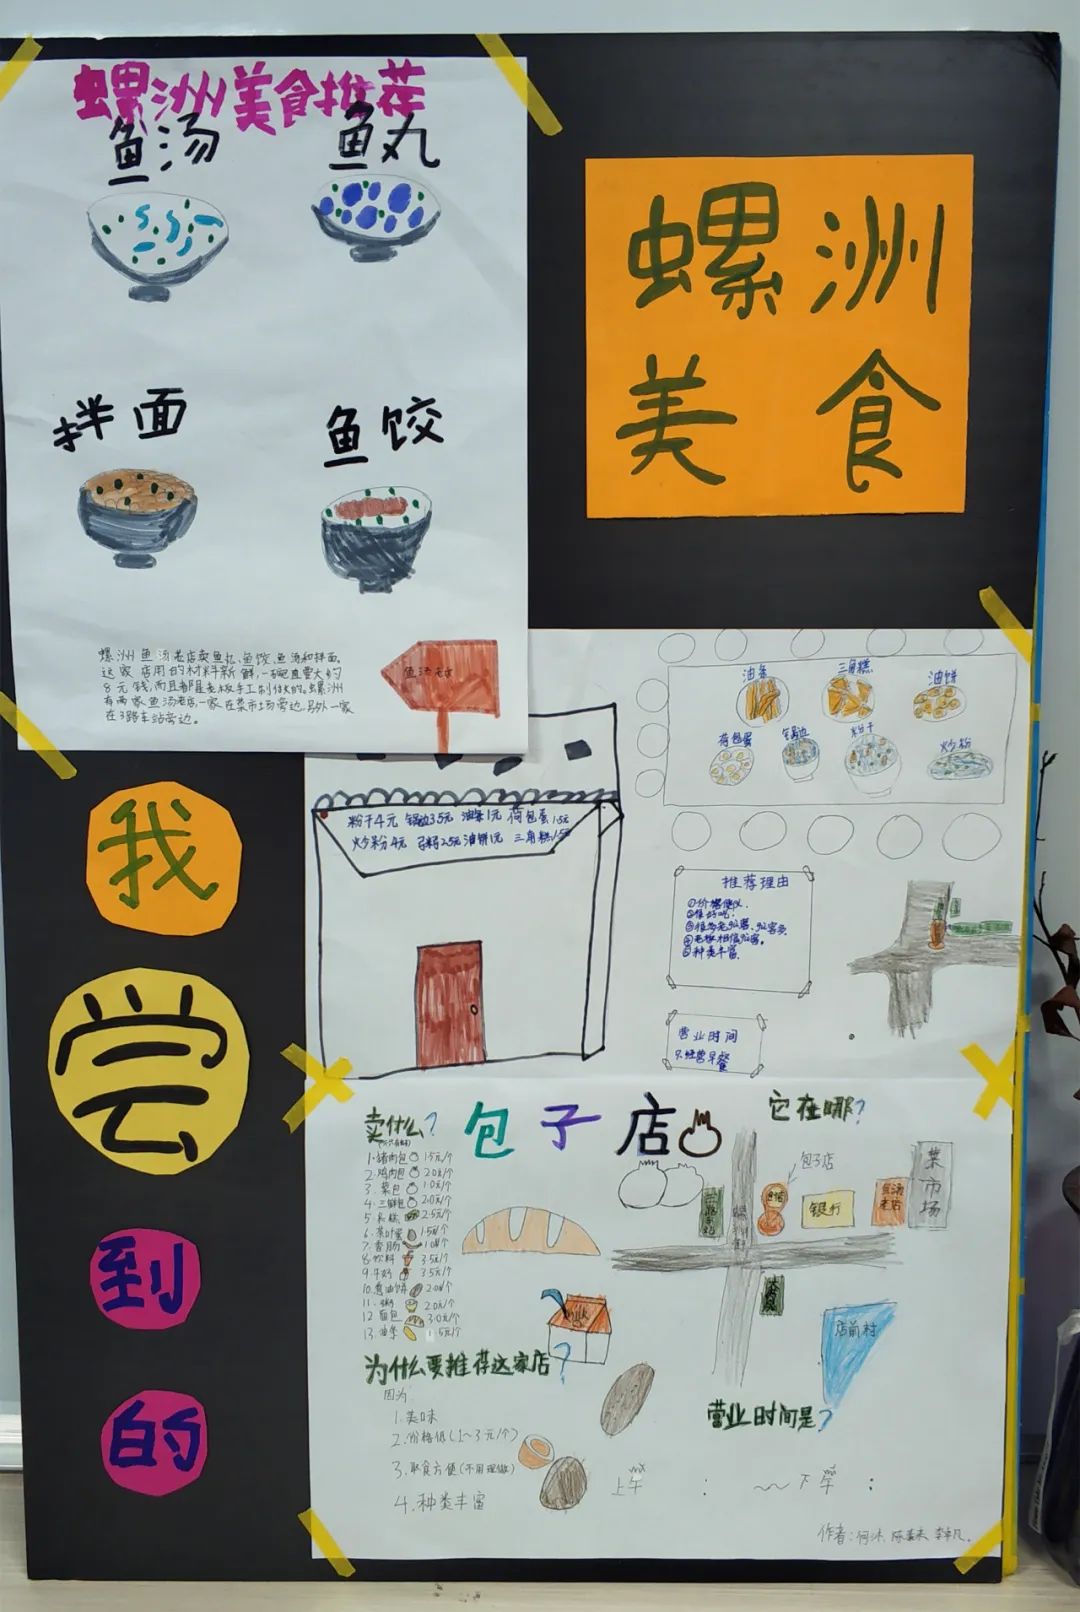 螺洲美食推荐
鱼汤
鱼丸
拌面
鱼饺
螺洲鱼汤老店卖鱼丸、鱼饺、鱼汤和拌面。
这家店用的材料新鲜,一碗直要大约
8元钱,而且都是老板手工制做的。螺洲
有两家鱼汤老店,一家在菜市场旁边,另外一家
在3路车站旁边。
鱼汤老店
螺洲
美食
我
尝
到
的
油条
三角糕
油饼
荷包蛋
锅边
粉干
炒粉
粉干4元 锅边3.5元 油条1元 荷包蛋1.5元
炒粉4元 2.5元 油饼1元 三角糕1.5元
推荐理由
①价格便宜.
②很好吃.
⑤种类丰富.
营业时间
只经营早餐
包子店
卖什么?
1.猪肉包 1.5元/个
2.鸡肉包 2.0元/个
3.菜包 1.0元/个
4.三鲜包 2.0元/个
5.长糕 2.5元/个
6.茶叶蛋 1.5元/个
7.香肠
8.饮料 3.5元/个
9.牛奶 3.5元/个
10.葱油饼 2.0元/个
11.粥 2.0元/个
12.面包 3.0元/个
13.油条
它在哪?
包子店
银行
鱼汤老店
菜市场
店前村
为什么要推荐这家店?
因为:
1.美味
2.价格低(1~3元/个)
3.取食方便(不用现做)
4.种类丰富
营业时间是?
上午 : ~ 下午 :
作者: